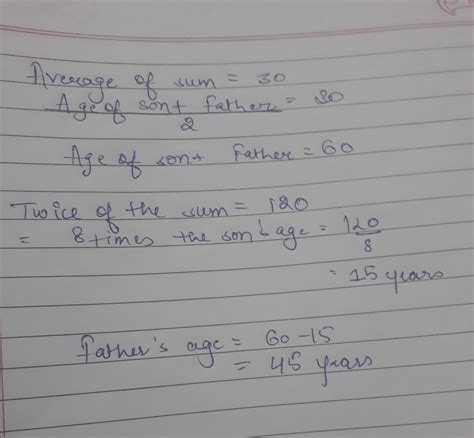 Average of sum = 30
Age of son + father = 30
2
Age of son + Father = 60
Twice of the sum = 120
= 8 times the son's age = 120
8
= 15 years
father's age = 60 - 15
= 45 years